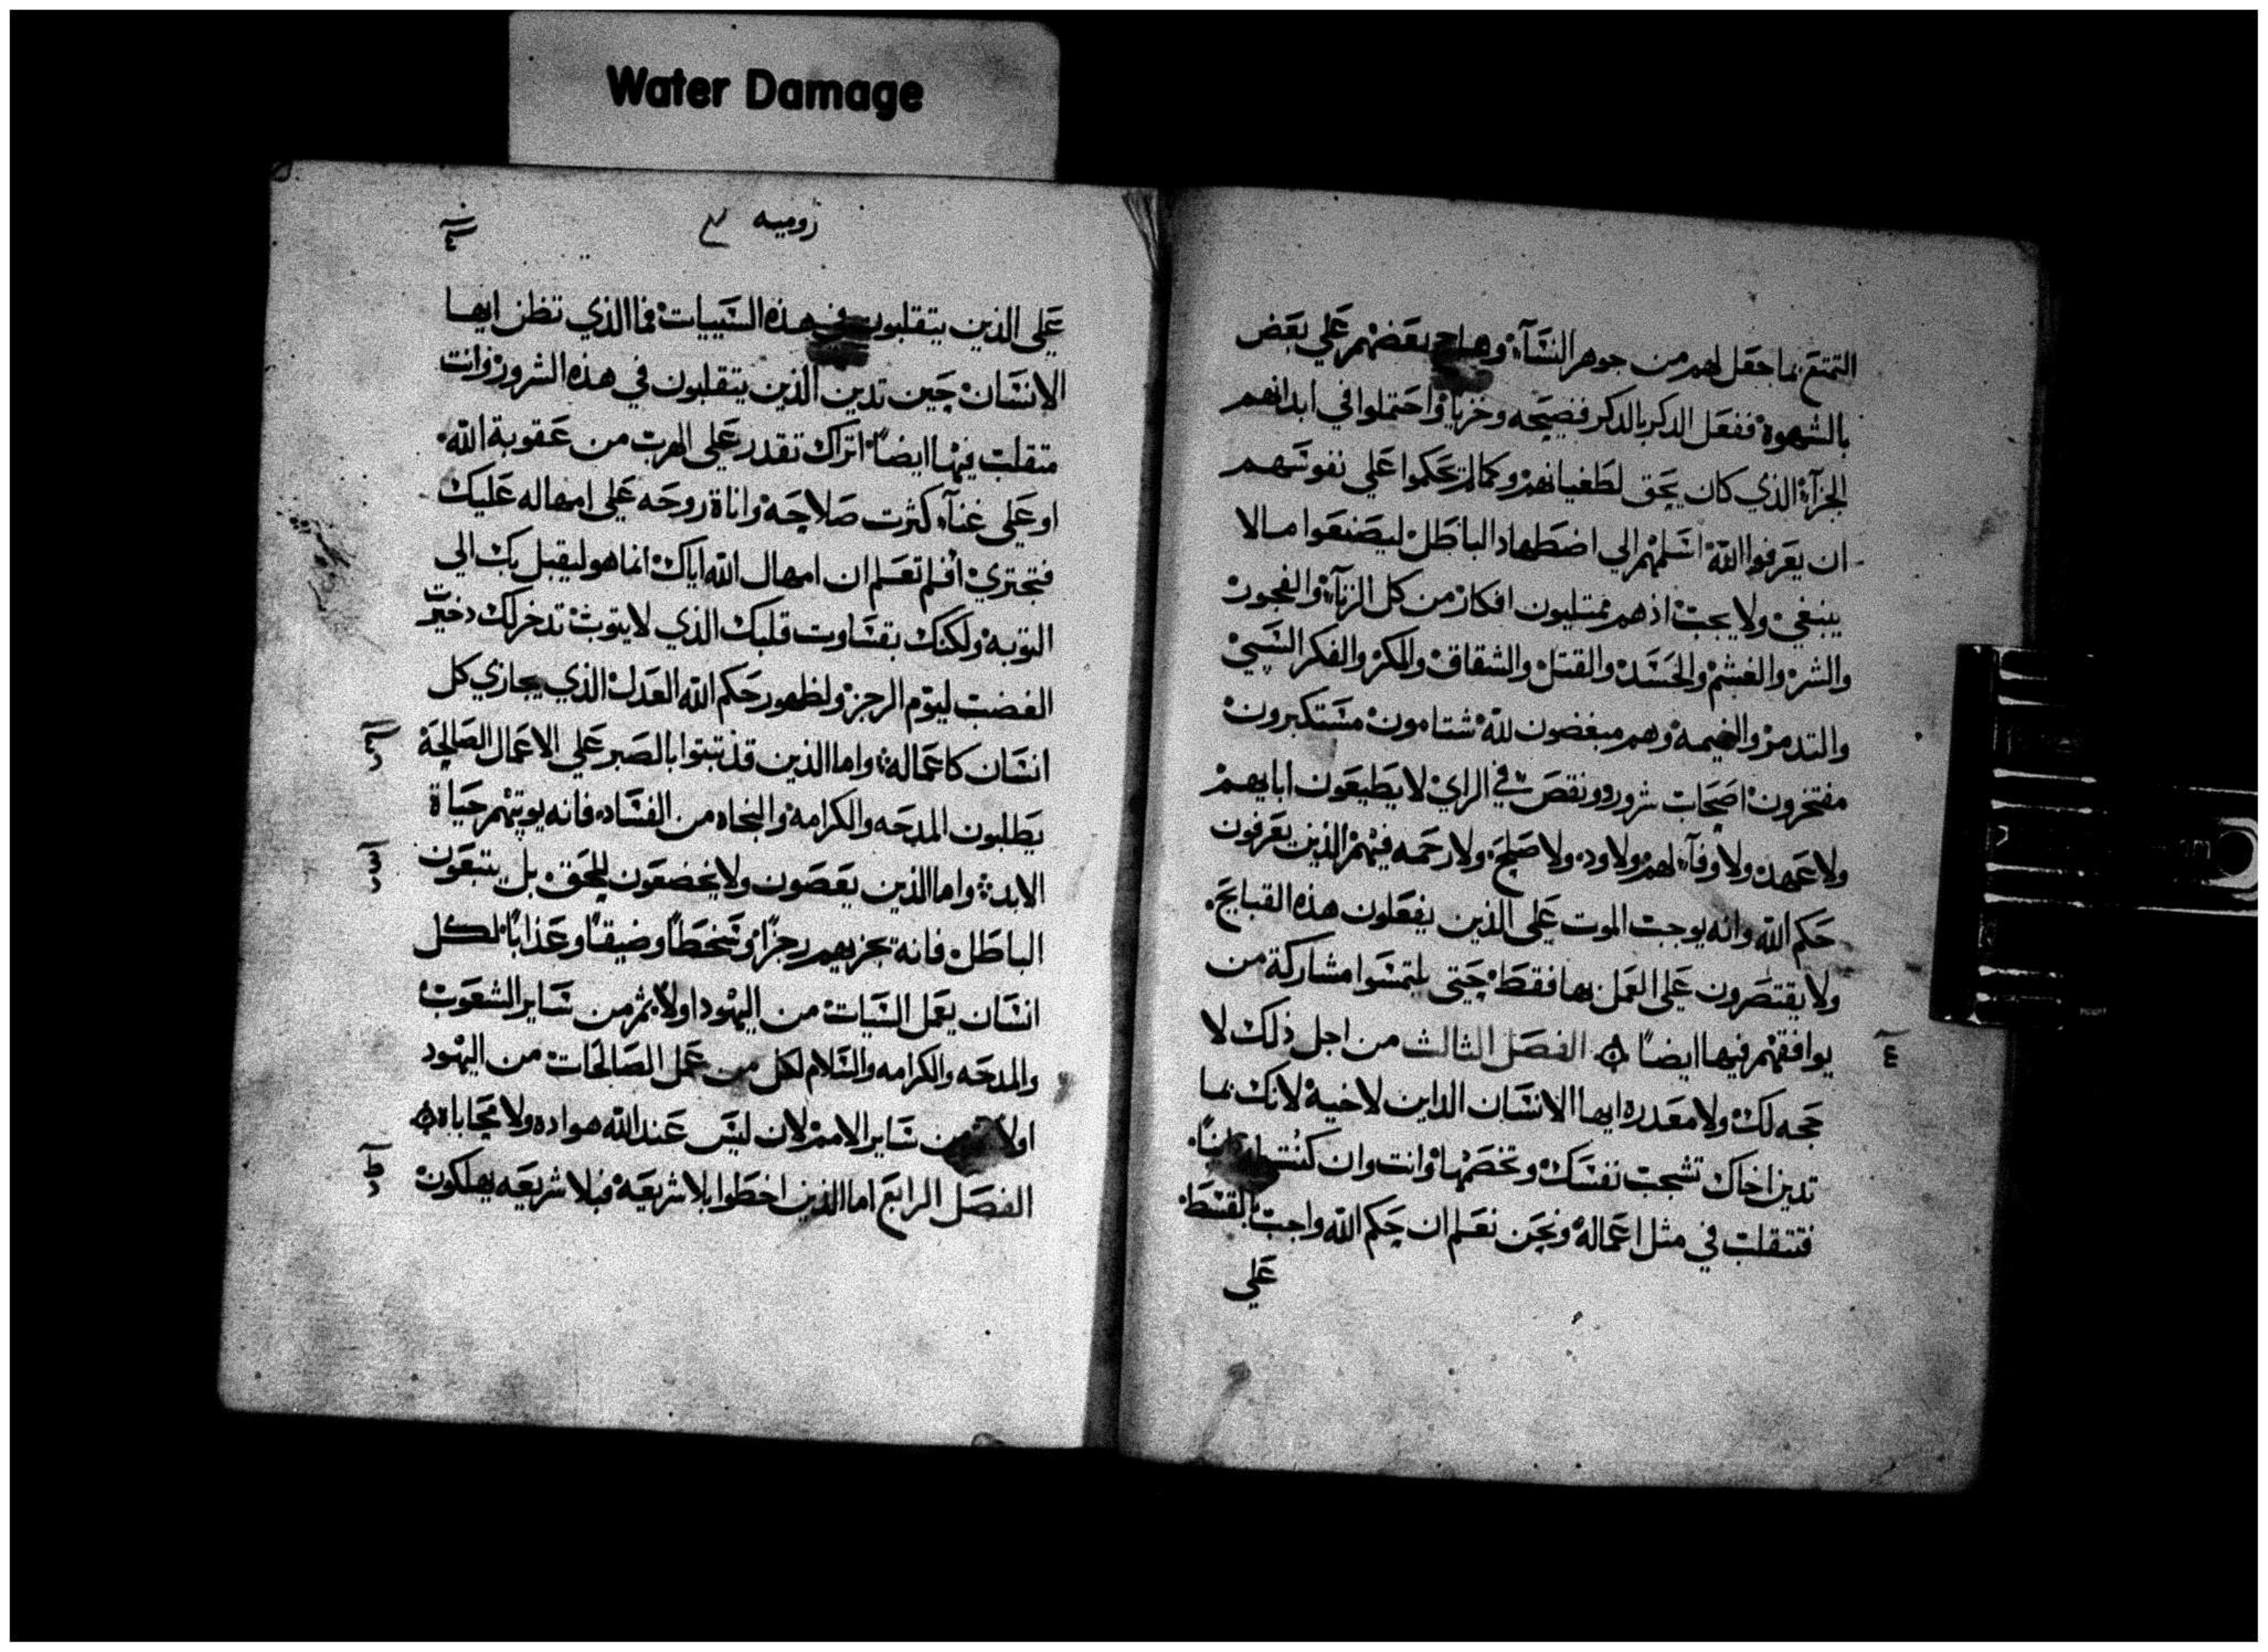 Water Damage
التمتع بما جعل لهم من جوهر النساء وهاج بعضهم علي بعض
بالشهوة ففعل الدكر بالدكر فضيحه وخزيا واحتملوا في ابدانهم
الجزاء الذي كان يحق لطغيانهم وكما لم يحكموا علي نفوسهم
ان يعرفوا الله اسلمهم الي اضطهاد الباطل ليصنعوا ما لا
ينبغي ولا يجب اذ هم ممتليون افكار من كل الزناء والفجور
والشر والغشم والحسد والقتل والشقاق والمكر والفكر السيئ
والتدمر والنميمه وهم مبغضون لله شتامون مستكبرون
مفتخرون اصحاب شرور ونقص في الراي لا يطيعون ابايهم
ولا عهد ولا وفاء لهم ولا ود ولا صلح ولا رحمه فيهم الذين يعرفون
حكم الله وانه يوجب الموت علي الذين يفعلون هذه القبايح
ولا يقتصرون علي العمل بها فقط حتي يلتمسوا مشاركة من
يوافقهم فيها ايضا الفصل الثالث من اجل ذلك لا
٤
حجه لك ولا معدره ايها الانسان الداين لاخيه لانك بما
تدين اخاك تشجب نفسك وتخصمها وانت وان كنت
فتتقلب في مثل اعماله ونحن نعلم ان حكم الله واجب بالقسط
علي
روميه
علي الذين يتقلبون في هذه السييات فما الذي تظن ايها
الانسان حين تدين الذين يتقلبون في هذه الشرور وانت
متقلب فيها ايضا اتراك تقدر علي الهرب من عقوبة الله
او علي غناء كثرت صلاحه واناة روحه علي امهاله عليك
فتجتري افلم تعلم ان امهال الله اياك انما هو ليقبل بك الي
التوبه ولكنك بقساوت قلبك الذي لا يتوب تدخر لك دخيرت
الغضب ليوم الرجز ولظهور حكم الله العدل الذي يجازي كل
انسان كاعماله واما الذين قد تبتوا بالصبر علي الاعمال الصالحة
يطلبون المدحه والكرامه والنجاه من الفساد فانه يوتيهم حياة
الابد واما الذين يعصون ولا يخضعون للحق بل يتبعون
الباطل فانه يجزيهم رجزا وسخطا وضيقا وعذابا لكل
انسان يعمل السيات من اليهود اولا ثم من ساير الشعوب
والمدحه والكرامه والسلام لكل من عمل الصالحات من اليهود
اولا من ساير الامم لان ليس عند الله هواده ولا محاباة
الفصل الرابع اما الذين اخطوا بلا شريعه فبلا شريعه يهلكون